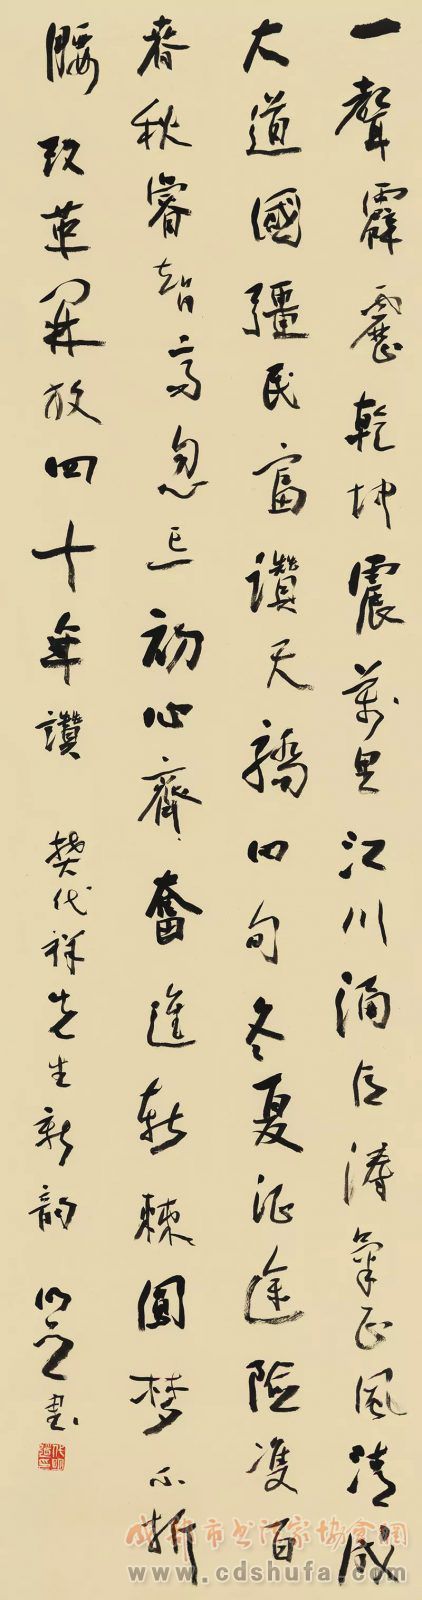 一聲霹靂乾坤震萬里江川涌巨濤氣正風清成
大道國彊民富讚天驕四旬冬夏征途險雙百
春秋睿智高忽忘初心齊奮進斬棘圓夢不折
腰 改革開放四十年讚 樊代祥先生新韵 書
成都市书法家协会网
www.cdshufa.com